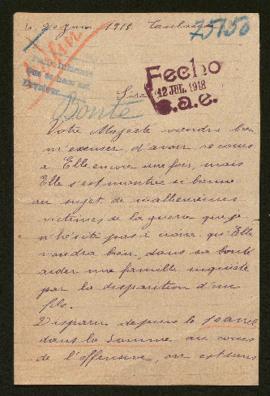 Juin 1918. Toulouse
75150
Fecho
12 JUL. 1918
S.a.e.
Bonté
Sire
Votre Majesté voudra bien
m'excuser, d'avoir recours
à Elle encore une fois, mais
Elle s'est montrée si bonne
au sujet de malheureuses
victimes de la guerre que je
n'hésite pas à croire qu'Elle
voudra bien, dans sa bonté
aider une famille inquiète
par la disparition d'un
fils.
Disparu depuis le
dans la Somme au cours
de l'offensive, on est sans